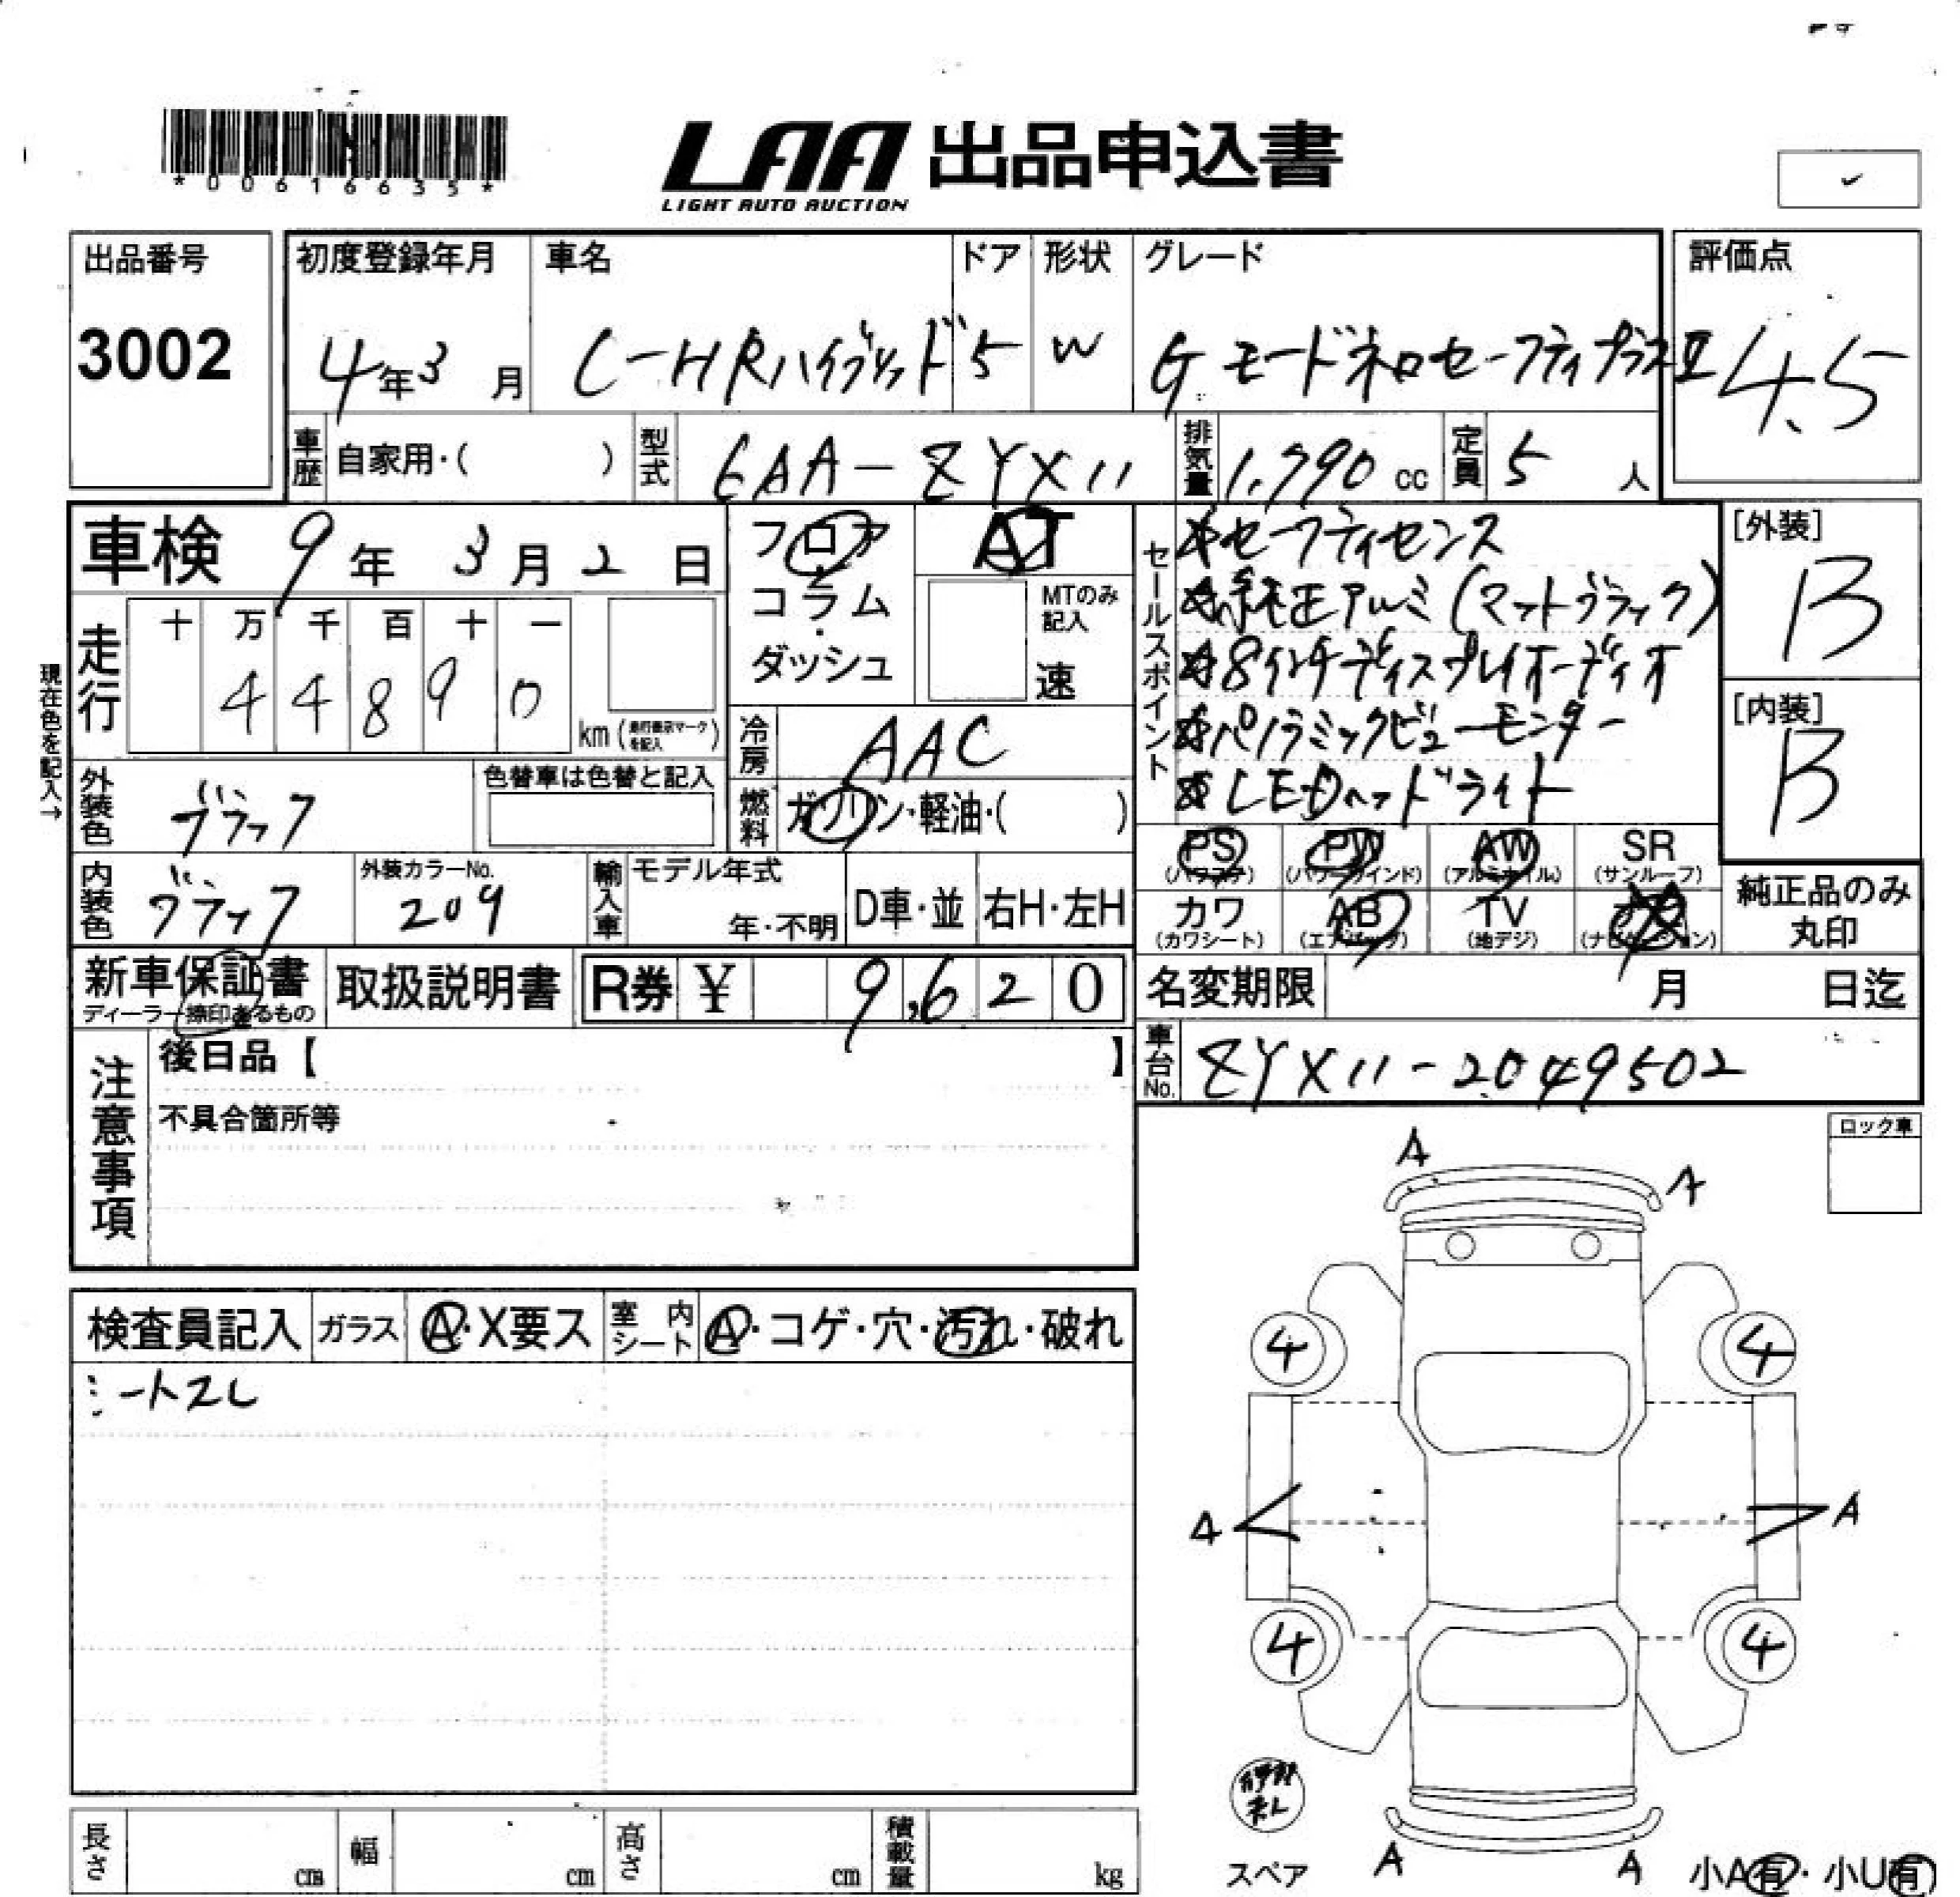 *00616635*
LAA 出品申込書
LIGHT AUTO AUCTION
出品番号
3002
初度登録年月
4年3月
車名
C-HRハイブリッド
ドア
5
形状
W
グレード
G モードネロセーフティプラスⅡ
評価点
4.5
車歴 自家用・( )
型式 6AA-ZYX11
排気量 1,790 cc
定員 5 人
車検 9年3月2日
現在色を記入→
走行
十 万 千 百 十 一
4 4 8 9 0
km (走行表示マークを記入)
フロア
コラム
・
ダッシュ
AT
MTのみ記入
速
冷房 AAC
燃料 ガソリン・軽油・( )
セールスポイント
セーフティセンス
純正アルミ(マットブラック)
8インチディスプレイオーディオ
パノラミックビューモニター
LEDヘッドライト
[外装]
B
[内装]
B
外装色 ブラック
色替車は色替と記入
内装色 ブラック
外装カラーNo.
209
輸入車
モデル年式
年・不明
D車・並
右H・左H
PS (パワステ)
PW (パワーウインド)
AW (アルミホイル)
SR (サンルーフ)
カワ (カワシート)
AB (エアバッグ)
TV (地デジ)
(ナビゲーション)
純正品のみ
丸印
新車保証書
ディーラー捺印あるもの
取扱説明書
R券 ¥ 9,620
名変期限 月 日迄
車台No. ZYX11-2049502
注意事項
後日品【 】
不具合箇所等
ロック車
検査員記入
ガラス
A・X要ス
室内シート
A・コゲ・穴・汚れ・破れ
A
A
4
4
A
A
4
4
A
A
スペア
小A有・小U有
長さ cm
幅 cm
高さ cm
積載量 kg